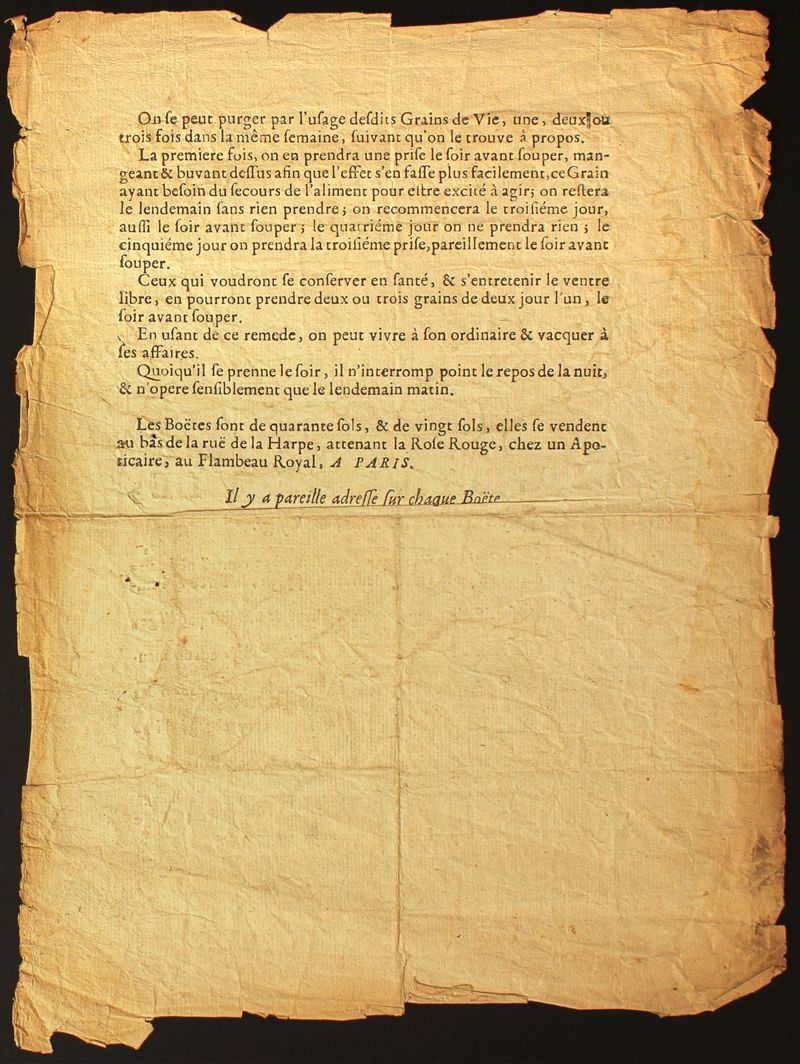 On ſe peut purger par l'uſage deſdits Grains de Vie, une, deux, ou
trois fois dans la même ſemaine, ſuivant qu'on le trouve à propos.
La premiere fois, on en prendra une priſe le ſoir avant ſouper, man-
geant & buvant deſſus afin que l'effet s'en faſſe plus facilement, ce Grain
ayant beſoin du ſecours de l'aliment pour eſtre excité à agir; on reſtera
le lendemain ſans rien prendre; on recommencera le troiſiéme jour,
auſſi le ſoir avant ſouper; le quatriéme jour on ne prendra rien; le
cinquiéme jour on prendra la troiſiéme priſe, pareillement le ſoir avant
ſouper.
Ceux qui voudront ſe conſerver en ſanté, & s'entretenir le ventre
libre, en pourront prendre deux ou trois grains de deux jour l'un, le
ſoir avant ſouper.
En uſant de ce remede, on peut vivre à ſon ordinaire & vacquer à
ſes affaires.
Quoiqu'il ſe prenne le ſoir, il n'interromp point le repos de la nuit,
& n'opere ſenſiblement que le lendemain matin.
Les Boëtes ſont de quarante ſols, & de vingt ſols, elles ſe vendent
au bas de la ruë de la Harpe, attenant la Roſe Rouge, chez un Apo-
ticaire, au Flambeau Royal, A PARIS.
Il y a pareille adreſſe ſur chaque Boëte